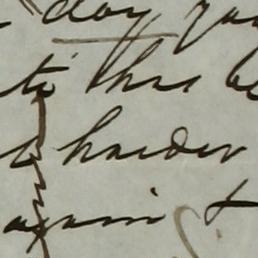 day
to this be
harder
again &